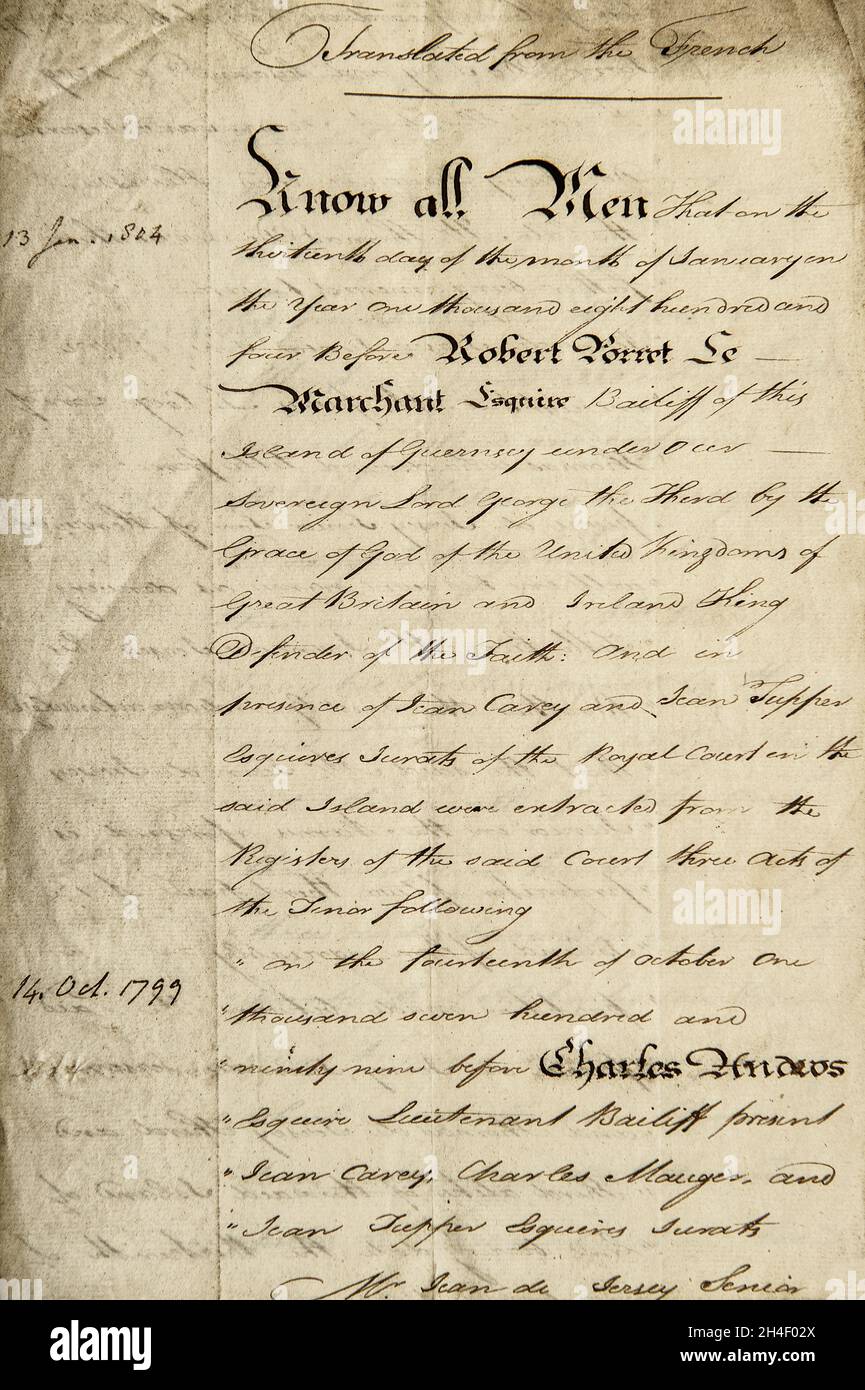 Translated from the French
Know all Men That on the
13 Jan. 1804
thirteenth day of the month of January in
the Year One thousand eight hundred and
four Before Robert Porret Le —
Marchant Esquire Bailiff of this
Island of Guernsey under Our —
Sovereign Lord George the Third by the
Grace of God of the United Kingdoms of
Great Britain and Ireland King
Defender of the Faith: And in
presence of Jean Carey and Jean Tupper
Esquires Jurats of the Royal Court in the
said Island were extracted from the
Registers of the said Court three Acts of
the Tenor following
" On the fourteenth of October One
14. Oct. 1799
" thousand seven hundred and
" ninety nine before Charles Andros
" Esquire Lieutenant Bailiff present
" Jean Carey, Charles Mauger, and
" Jean Tupper Esquires Jurats
Mr. Jean de Jersey Senior
alamy
Image ID: 2H4F02X
www.alamy.com